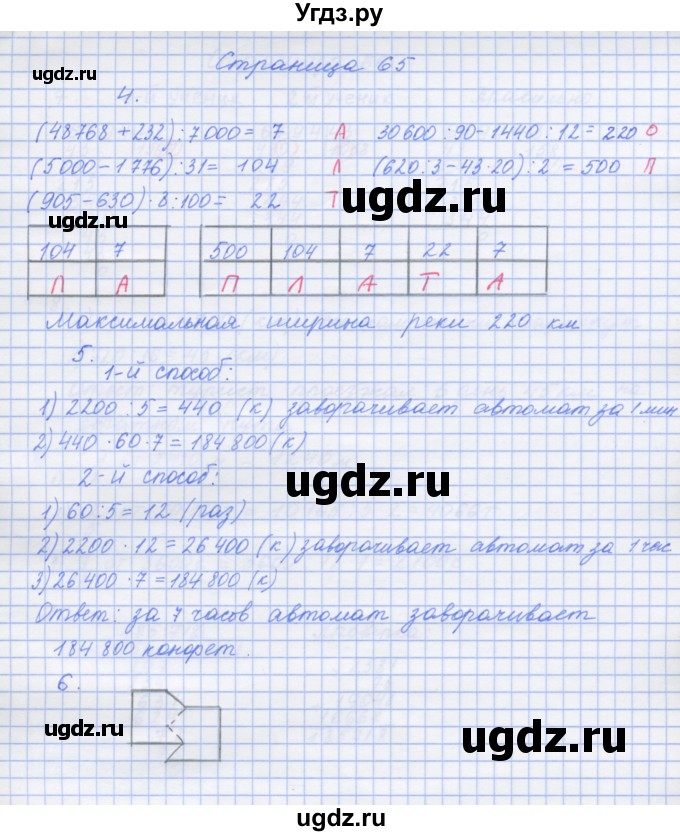 Угдз.ру
Страница 65
4.
(48768 + 232) : 7000 = 7 А 30600 : 90 - 1440 : 12 = 220 О
(5000 - 1776) : 31 = 104 Л (620 : 3 - 43 · 20) : 2 = 500 П
(905 - 630) · 8 : 100 = 22 Т
104 7 500 104 7 22 7
Л А П Л А Т А
Максимальная ширина реки 220 км
5.
1-й способ:
1) 2200 : 5 = 440 (к) заворачивает автомат за 1 мин
2) 440 · 60 · 7 = 184 800 (к)
2-й способ:
1) 60 : 5 = 12 (раз)
2) 2200 · 12 = 26 400 (к) заворачивает автомат за 1 час
3) 26 400 · 7 = 184 800 (к)
Ответ: за 7 часов автомат заворачивает
184 800 конфет.
6.
ugdz.ru
ugdz.ru
ugdz.ru
ugdz.ru
ugdz.ru
ugdz.ru
ugdz.ru
ugdz.ru